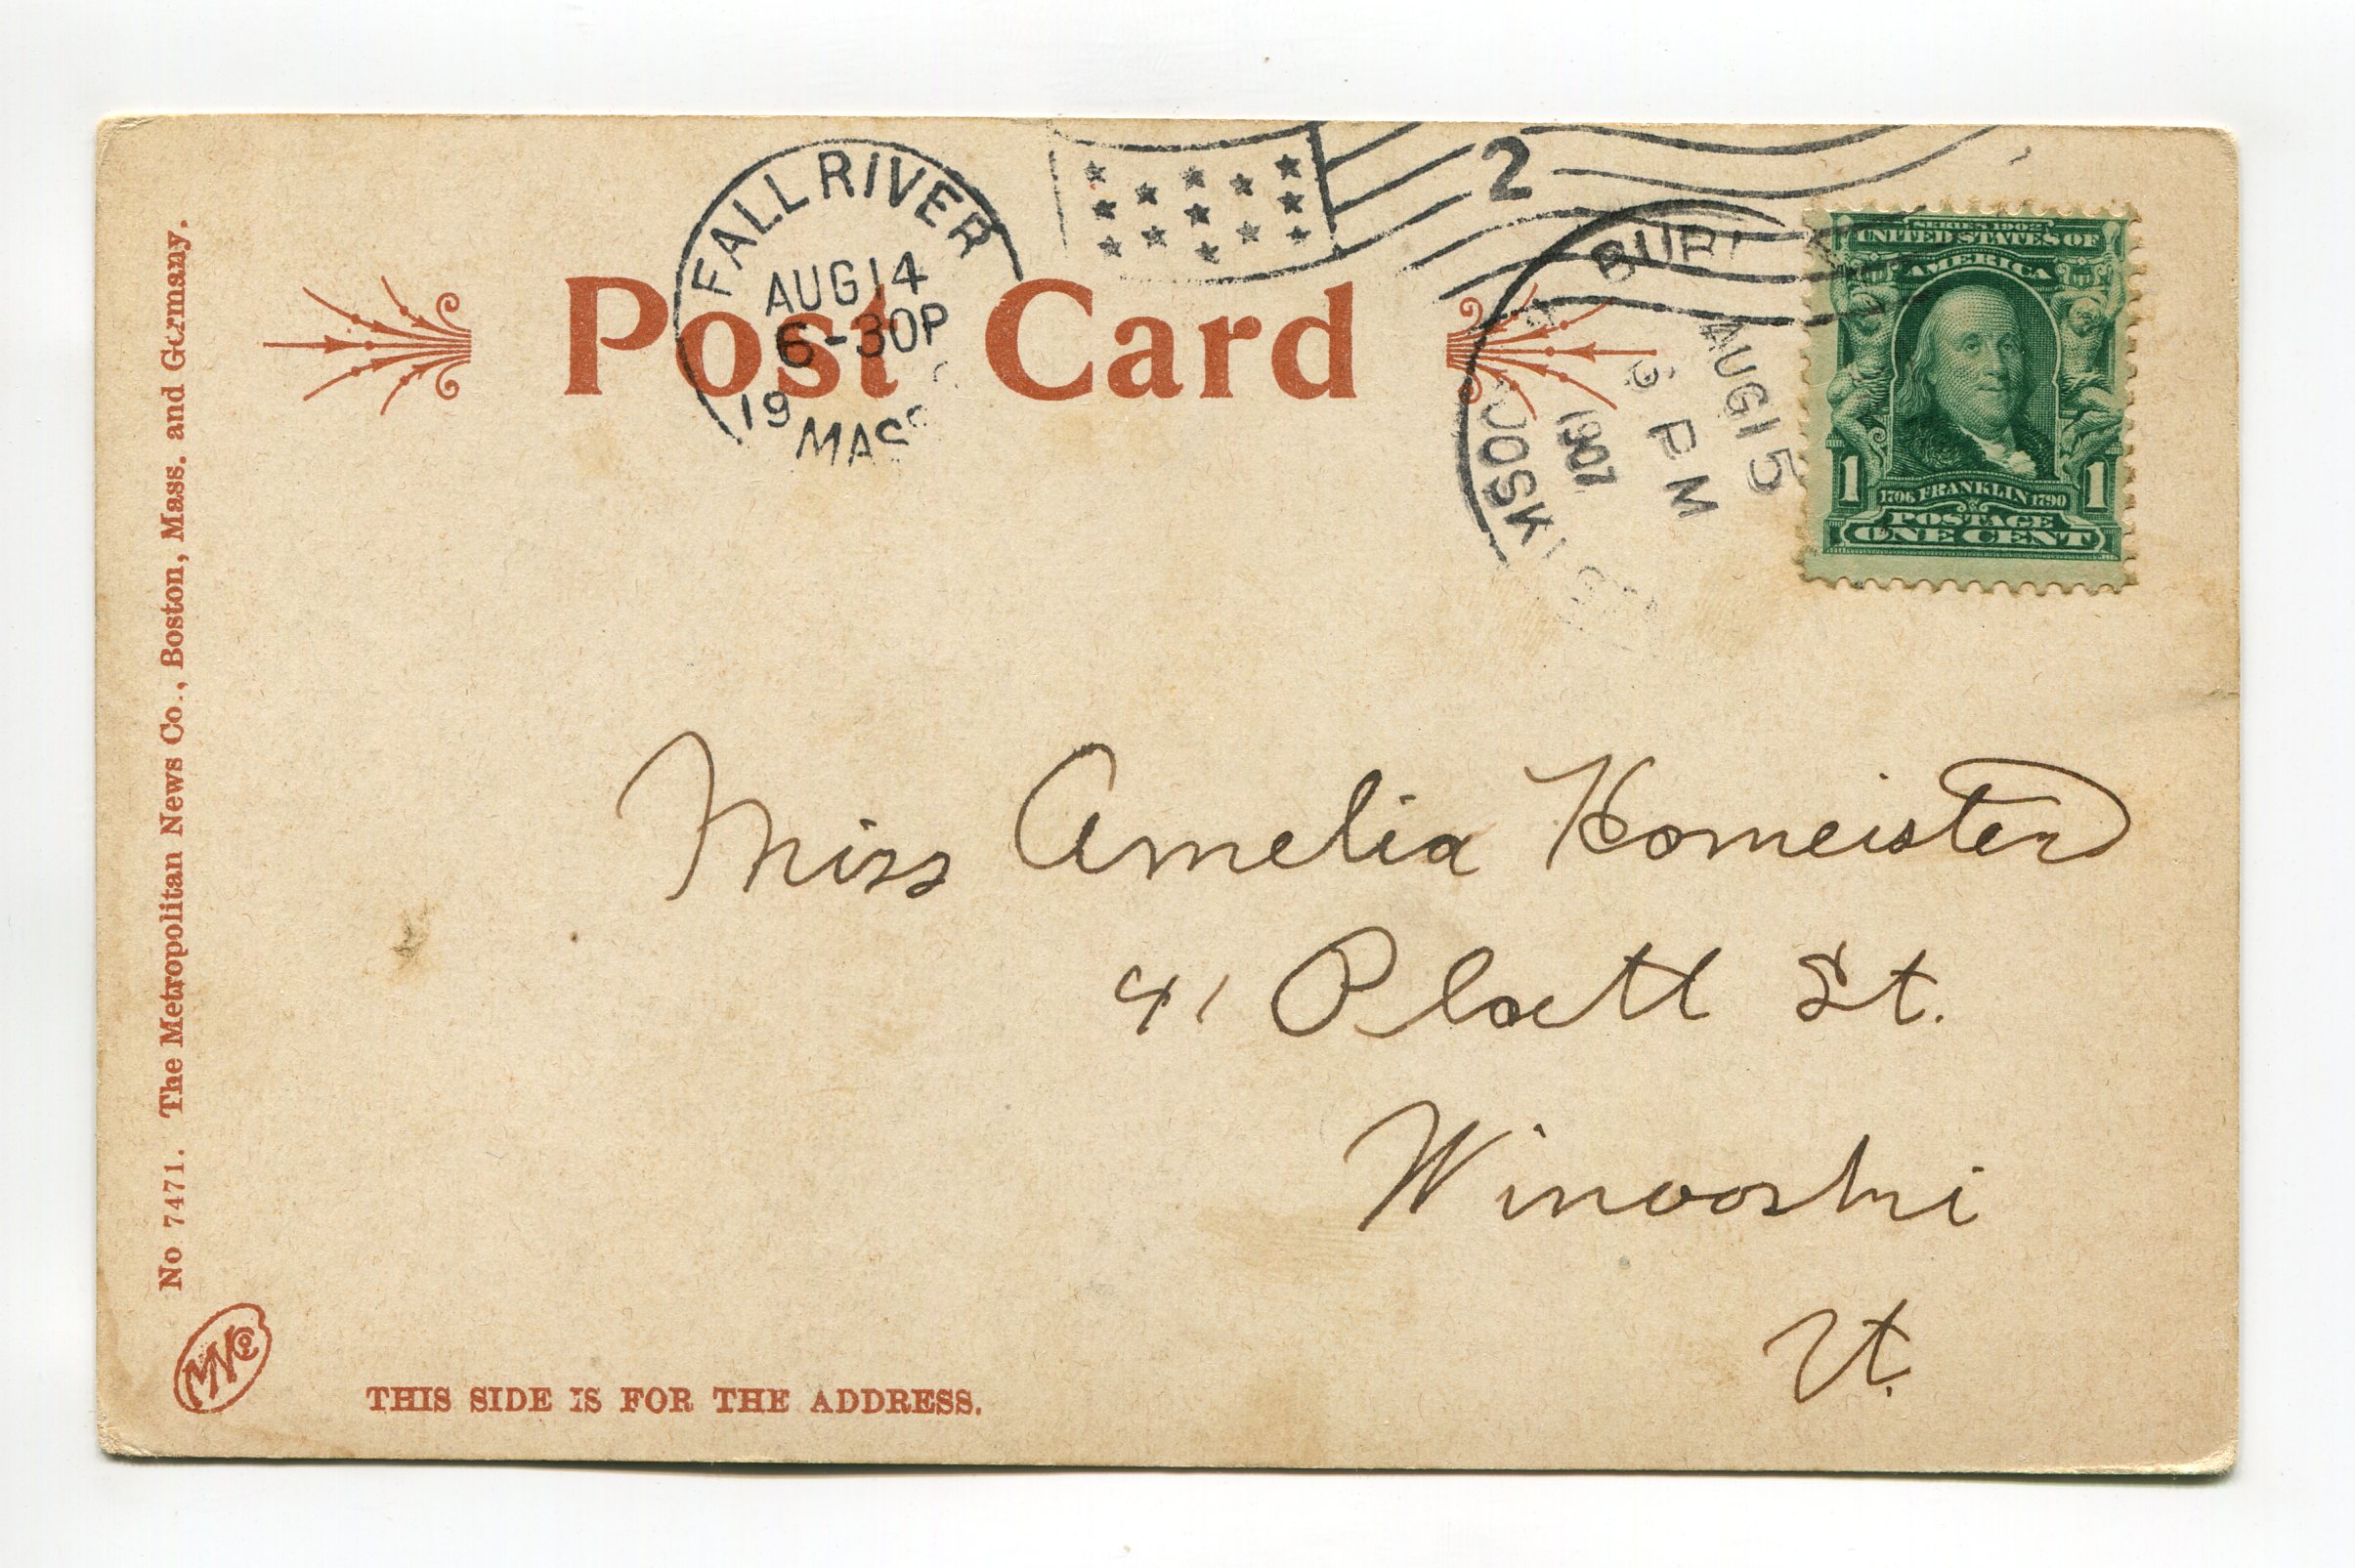 FALL RIVER
AUG 14
6-30P
19
MASS
2
BURL
AUG 15
6 PM
1907
OOSKI
SERIES 1902
UNITED STATES OF
AMERICA
1 1
1706 FRANKLIN 1790
POSTAGE
ONE CENT
Post Card
Miss Amelia Homeister
41 Platt St.
Winooski
Vt.
No 7471. The Metropolitan News Co., Boston, Mass. and Germany.
MNCo
THIS SIDE IS FOR THE ADDRESS.